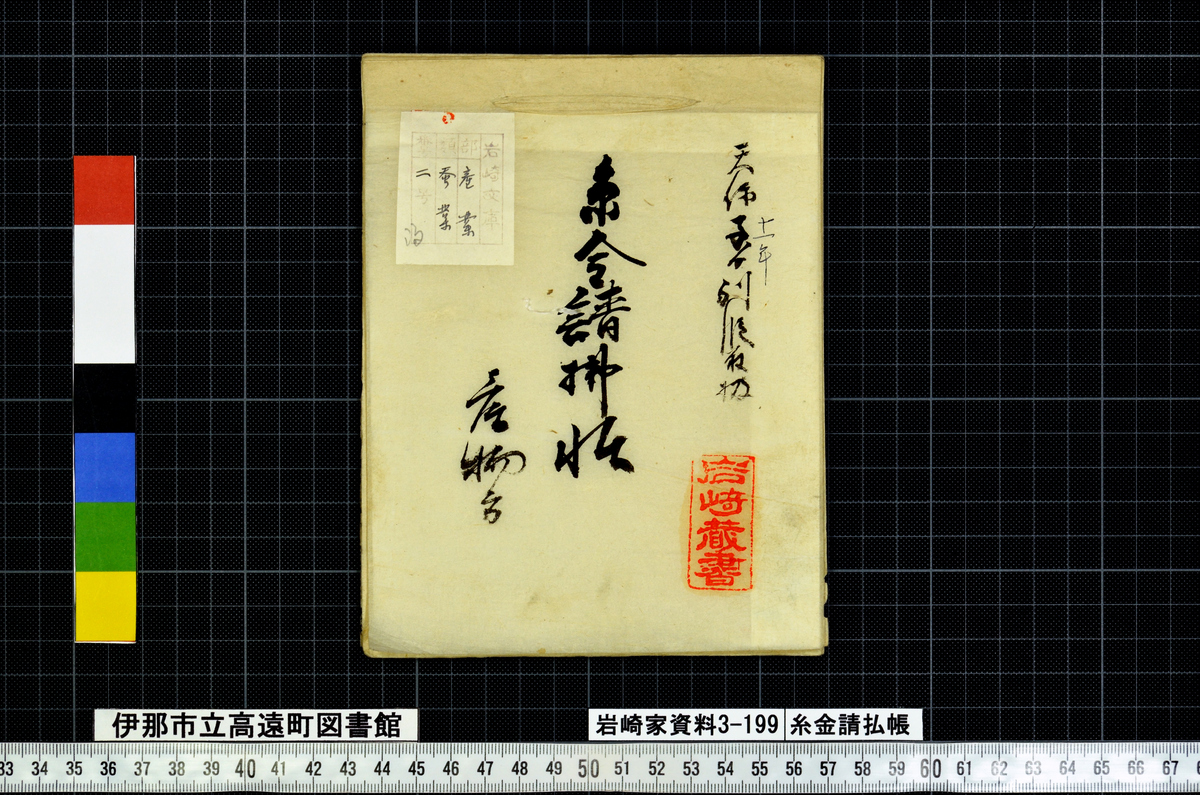 天保
十一年
糸金請拂帳
産物方
岩崎蔵書
岩崎文庫
部 産業
類 蚕業
二号
伊那市立高遠町図書館
岩崎家資料3-199
糸金請払帳
33 34 35 36 37 38 39 40 41 42 43 44 45 46 47 48 49 50 51 52 53 54 55 56 57 58 59 60 61 62 63 64 65 66 67